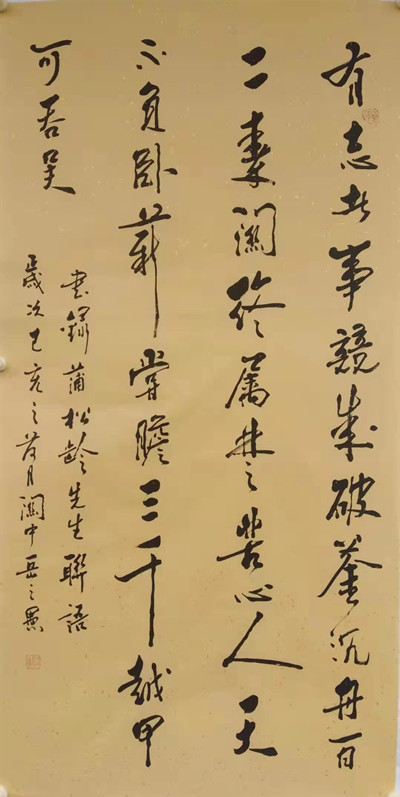 有志者事競成破釜沉舟百
二秦關終屬楚苦心人天
不負臥薪嘗膽三千越甲
可吞吴
書錄蒲松齡先生聯語
歲次己亥之月關中岳之